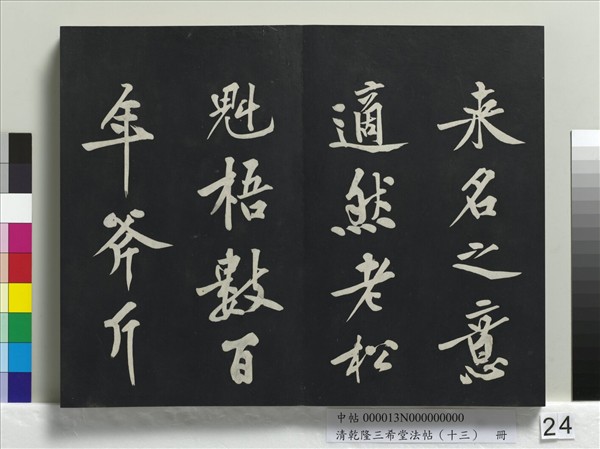 来名之意
適然老松
魁梧數百
年斧斤
中帖 000013N000000000
清乾隆三希堂法帖（十三） 冊
24